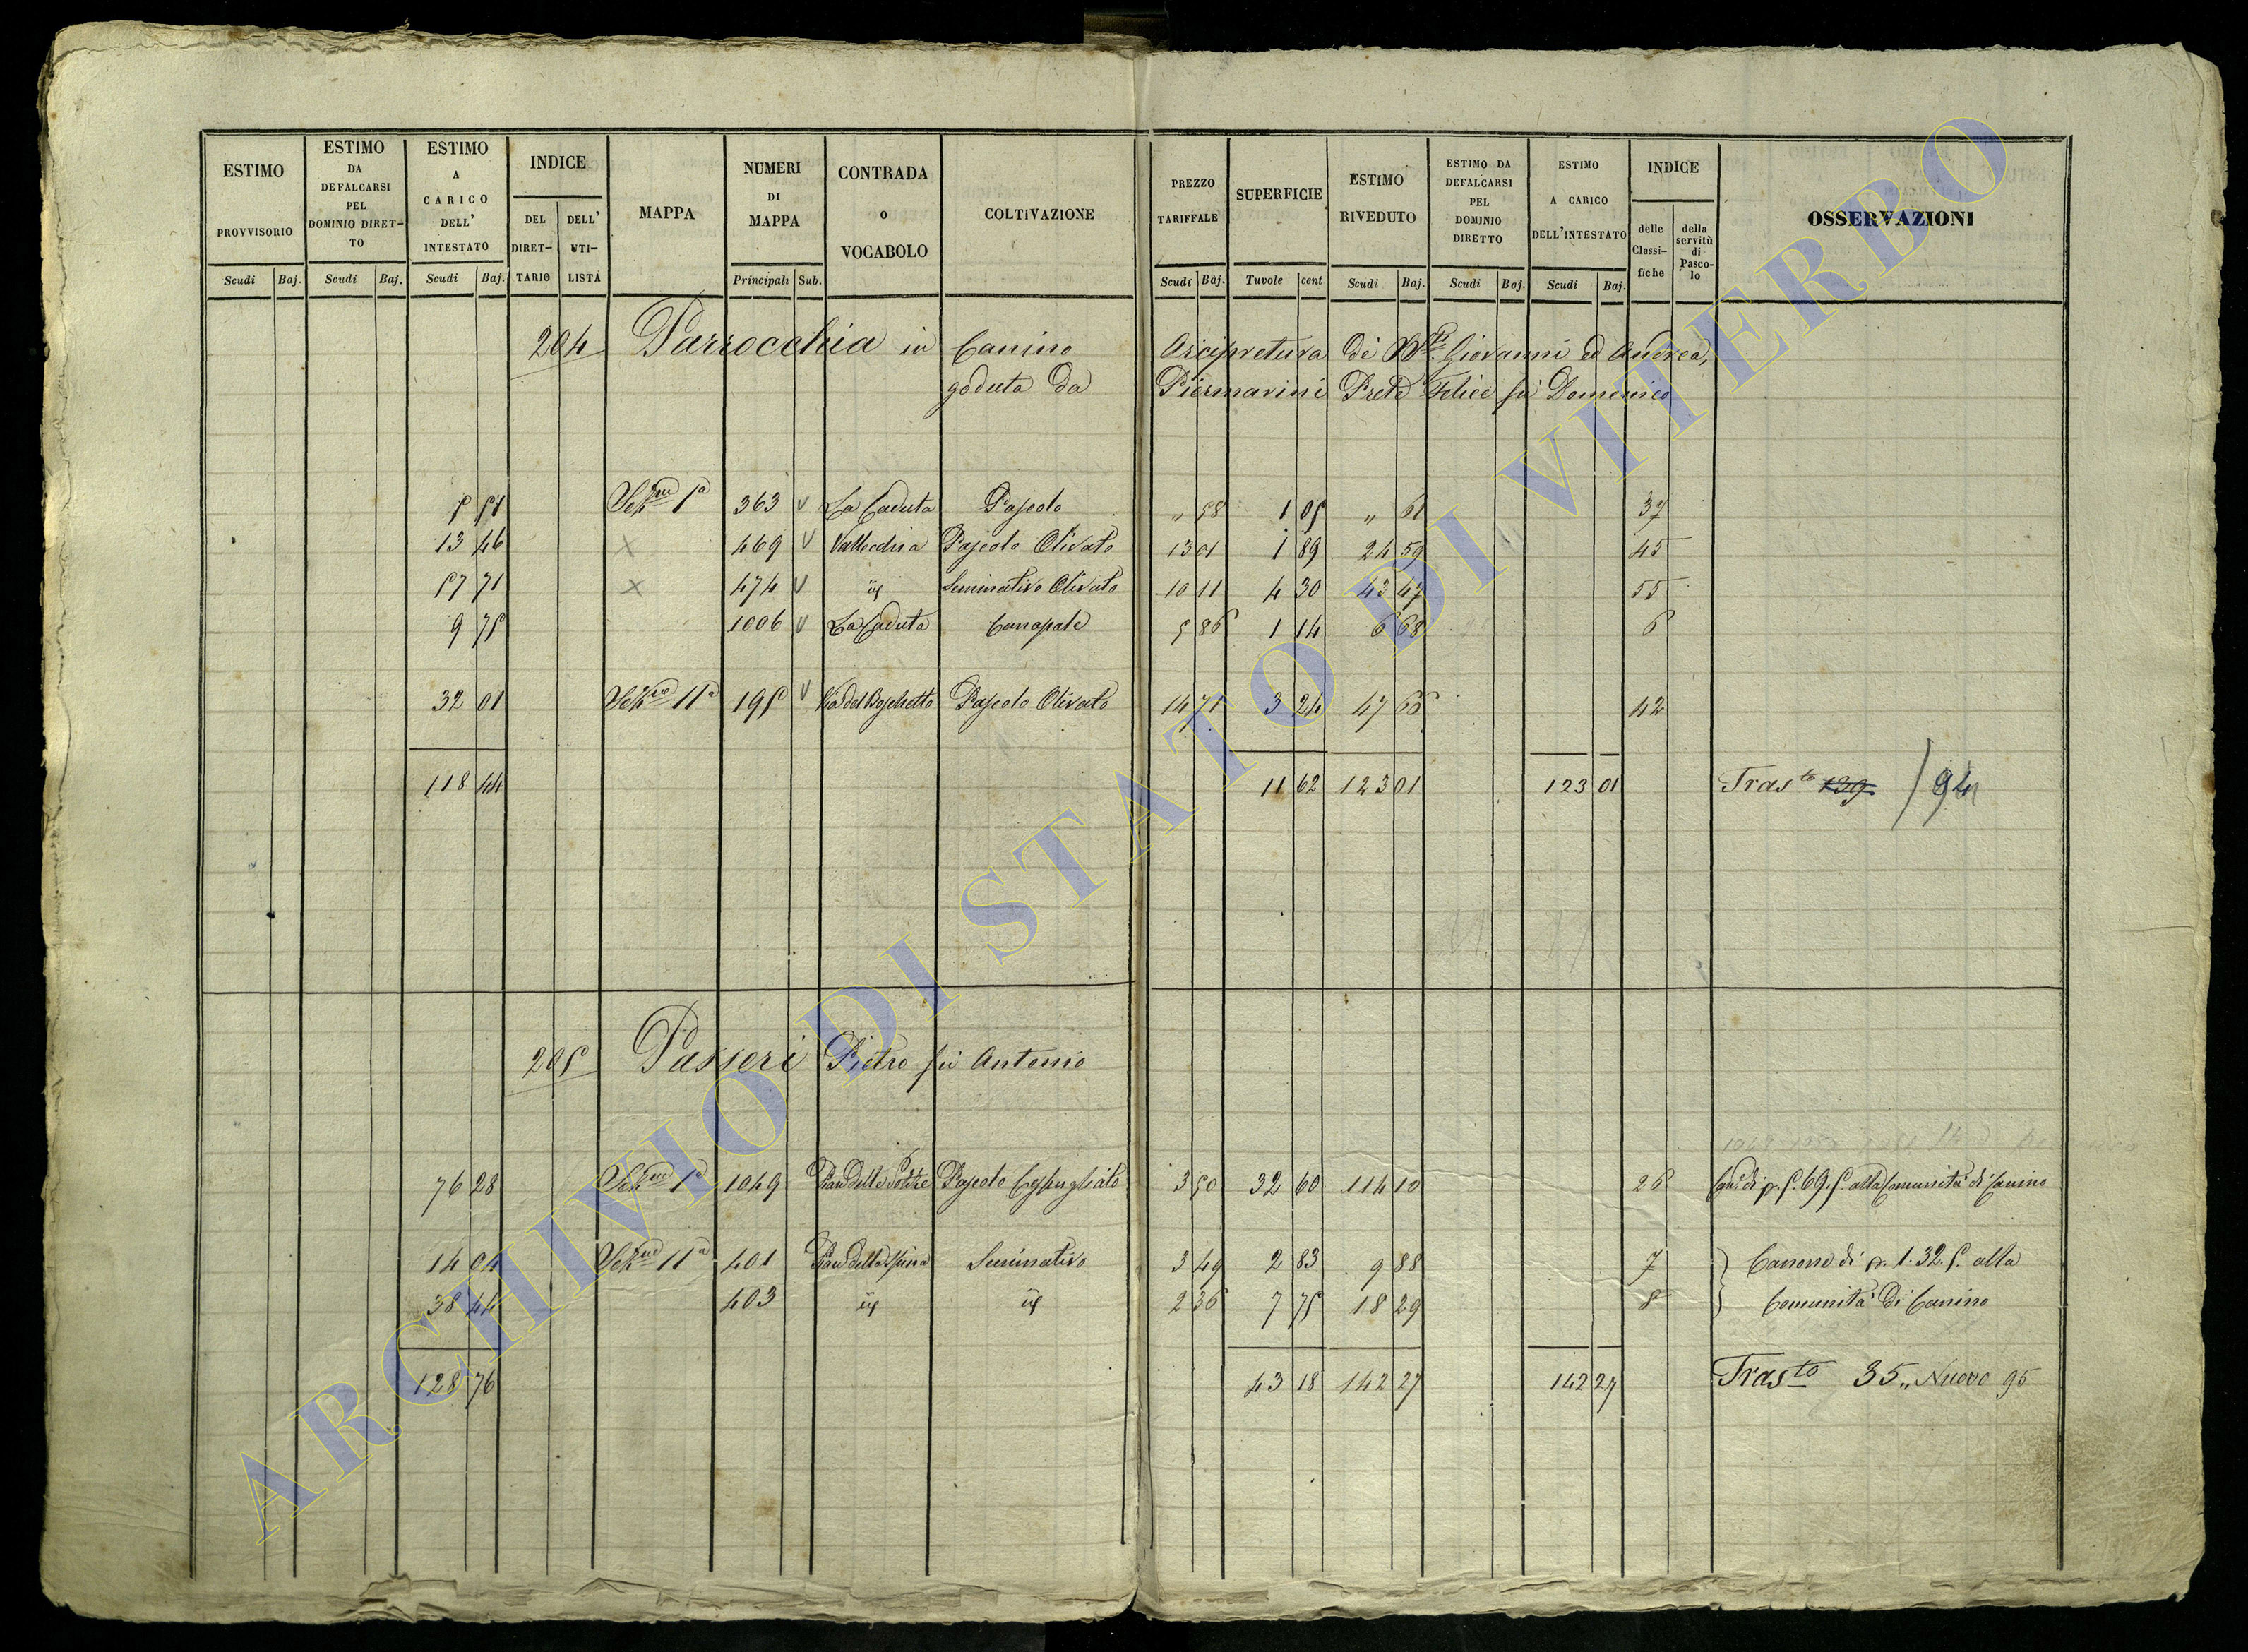 ESTIMO PROVVISORIO
ESTIMO DA DEFALCARSI PEL DOMINIO DIRETTO
ESTIMO A CARICO DELL' INTESTATO
INDICE
DEL DIRETTARIO
DELL' UTILISTA
MAPPA
NUMERI DI MAPPA
CONTRADA o VOCABOLO
COLTIVAZIONE
PREZZO TARIFFALE
SUPERFICIE
ESTIMO RIVEDUTO
ESTIMO DA DEFALCARSI PEL DOMINIO DIRETTO
ESTIMO A CARICO DELL'INTESTATO
INDICE
delle Classifiche
della servitù di Pascolo
OSSERVAZIONI
Scudi Baj. Scudi Baj. Scudi Baj. Principali Sub. Scudi Baj. Tuvole cent Scudi Baj. Scudi Baj. Scudi Baj.
204 Parrocchia in Canino Arcipretura di SSti Giovanni ed Andrea,
goduta da Piermarini Prete Felice fu Domenico
5 51 Seze 1a 363 v La Caduta Pascolo " 58 1 05 " 61 37
13 46 x 469 v Vallecchia Pascolo Olivato 13 01 1 89 24 59 45
57 71 x 474 v id Seminativo Olivato 10 11 4 30 43 47 55
9 75 1006 v La Caduta Canapale 5 86 1 14 6 68 6
32 01 11a 195 v Via del Boschetto Pascolo Olivato 14 71 3 24 47 66 42
118 44 11 62 123 01 123 01 Trasto 139 / 94
205 Passeri Pietro fu Antonio
76 28 1a 1049 Pian delle Pascolo Cespugliato 3 50 32 60 114 10 26 di p. 5. 69. 5 alla Comunità di Canino
14 04 11a 401 Pian della Spina Seminativo 3 49 2 83 9 88 7 Canone di p. 1. 32. 5. alla
38 44 403 id id 2 36 7 75 18 29 8 Comunità di Canino
128 76 43 18 142 27 142 27 Trasto 35 " Nuovo 95
ARCHIVIO DI STATO DI VITERBO